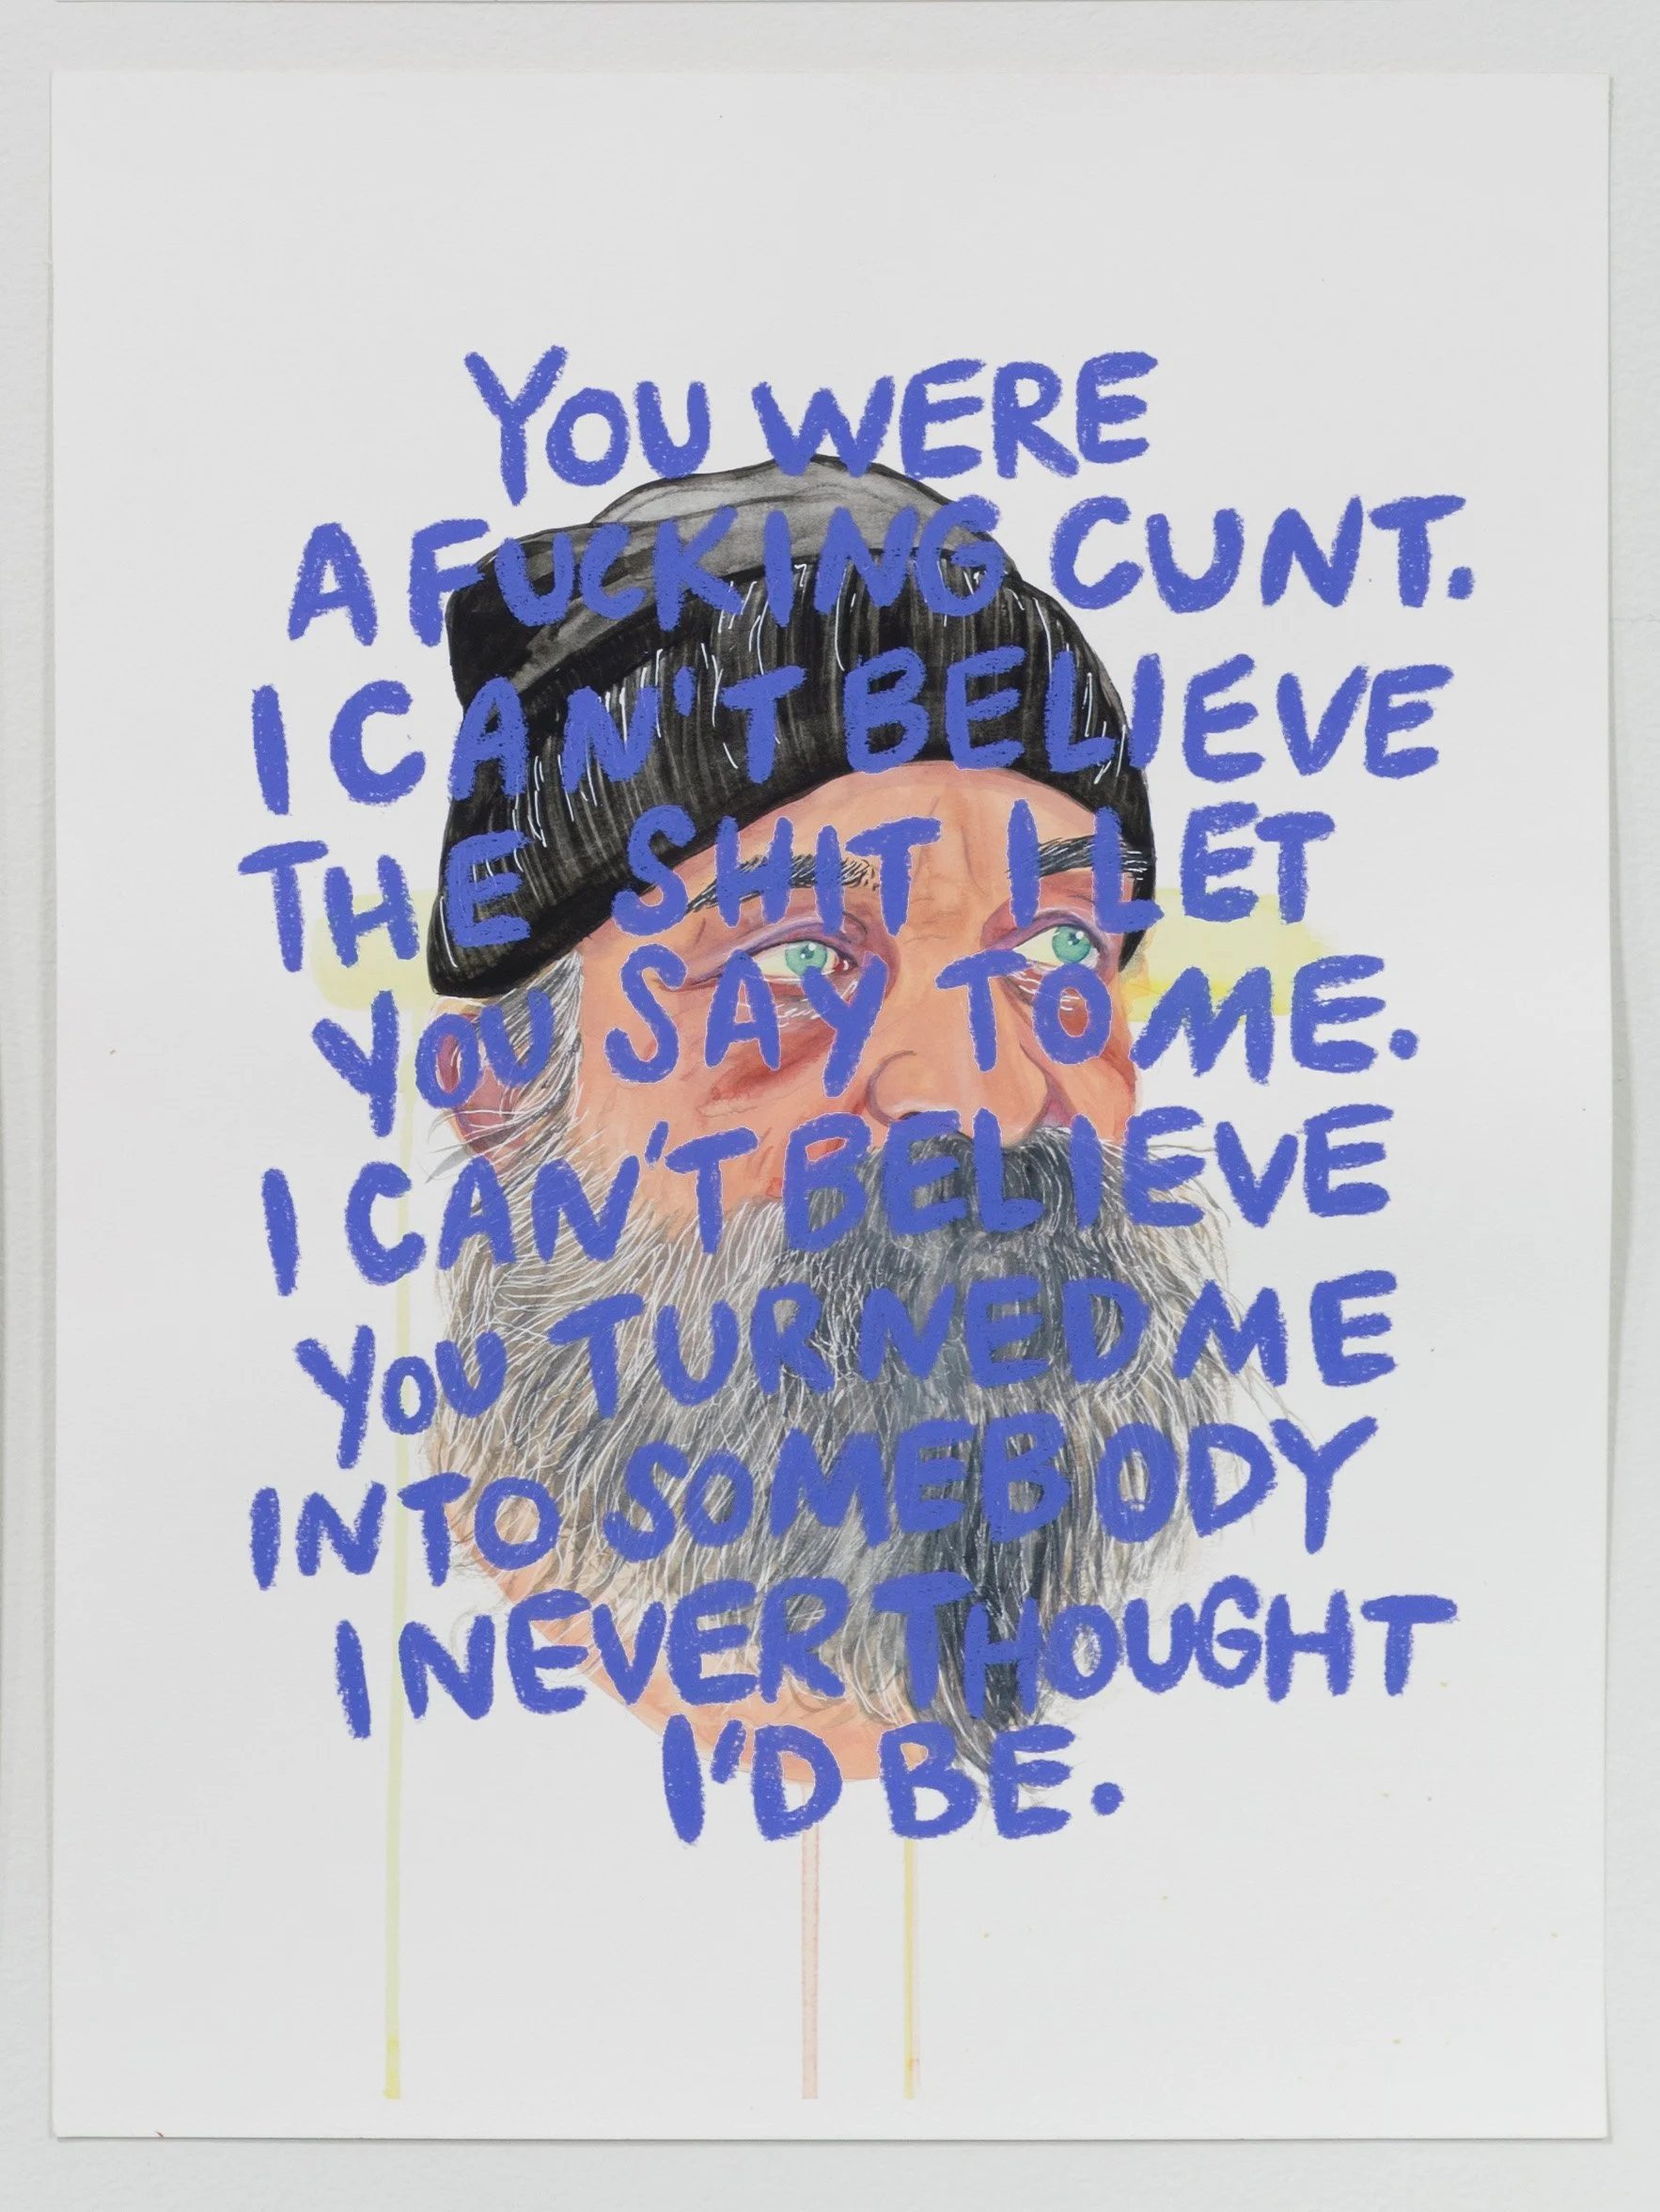 YOU WERE
A FUCKING CUNT.
I CAN'T BELIEVE
THE SHIT I LET
YOU SAY TO ME.
I CAN'T BELIEVE
YOU TURNED ME
INTO SOMEBODY
I NEVER THOUGHT
I'D BE.